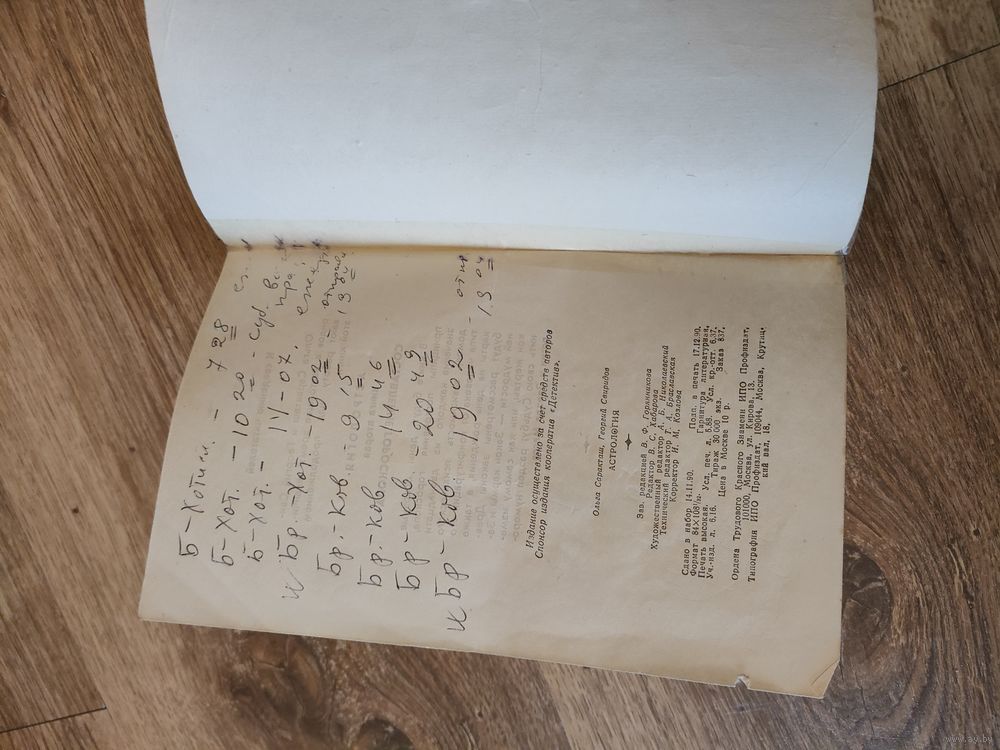 Б-Хотим. - 7 28
Б-Хот. - 10 20 - суб.
Б-Хот. - 17-07.
и Бр-Хот. - 19 02 - отправ
13
Бр.-ков 9 15
Бр.-ков. 14 46
Бр-ков 20 49
и Бр-ков. 19 02 - отпр
13 04
Издание осуществлено за счет средств авторов
Спонсор издания кооператив «Детектив».
Ольга Саракташ, Георгий Свиридов
АСТРОЛОГИЯ
Зав. редакцией В. Ф. Горянникова
Редактор В. С. Хабарова
Художественный редактор А. Б. Николаевский
Технический редактор Т. А. Браславская
Корректор И. М. Козлова
Сдано в набор 14.11.90. Подп. в печать 17.12.90.
Формат 84×108¹/₃₂. Гарнитура литературная.
Печать высокая. Усл. печ. л. 5,88. Усл. кр.-отт. 6,37.
Уч.-изд. л. 6,16. Тираж 30 000 экз. Заказ 837.
Цена в Москве 10 р.
Ордена Трудового Красного Знамени ИПО Профиздат,
101000, Москва, ул. Кирова, 13.
Типография ИПО Профиздат, 109044, Москва, Крутиц-
кий вал, 18.
www.ay.by